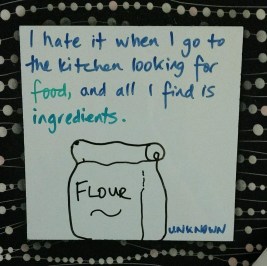 I hate it when I go to
the kitchen looking for
food, and all I find is
ingredients.
FLOUR
UNKNOWN